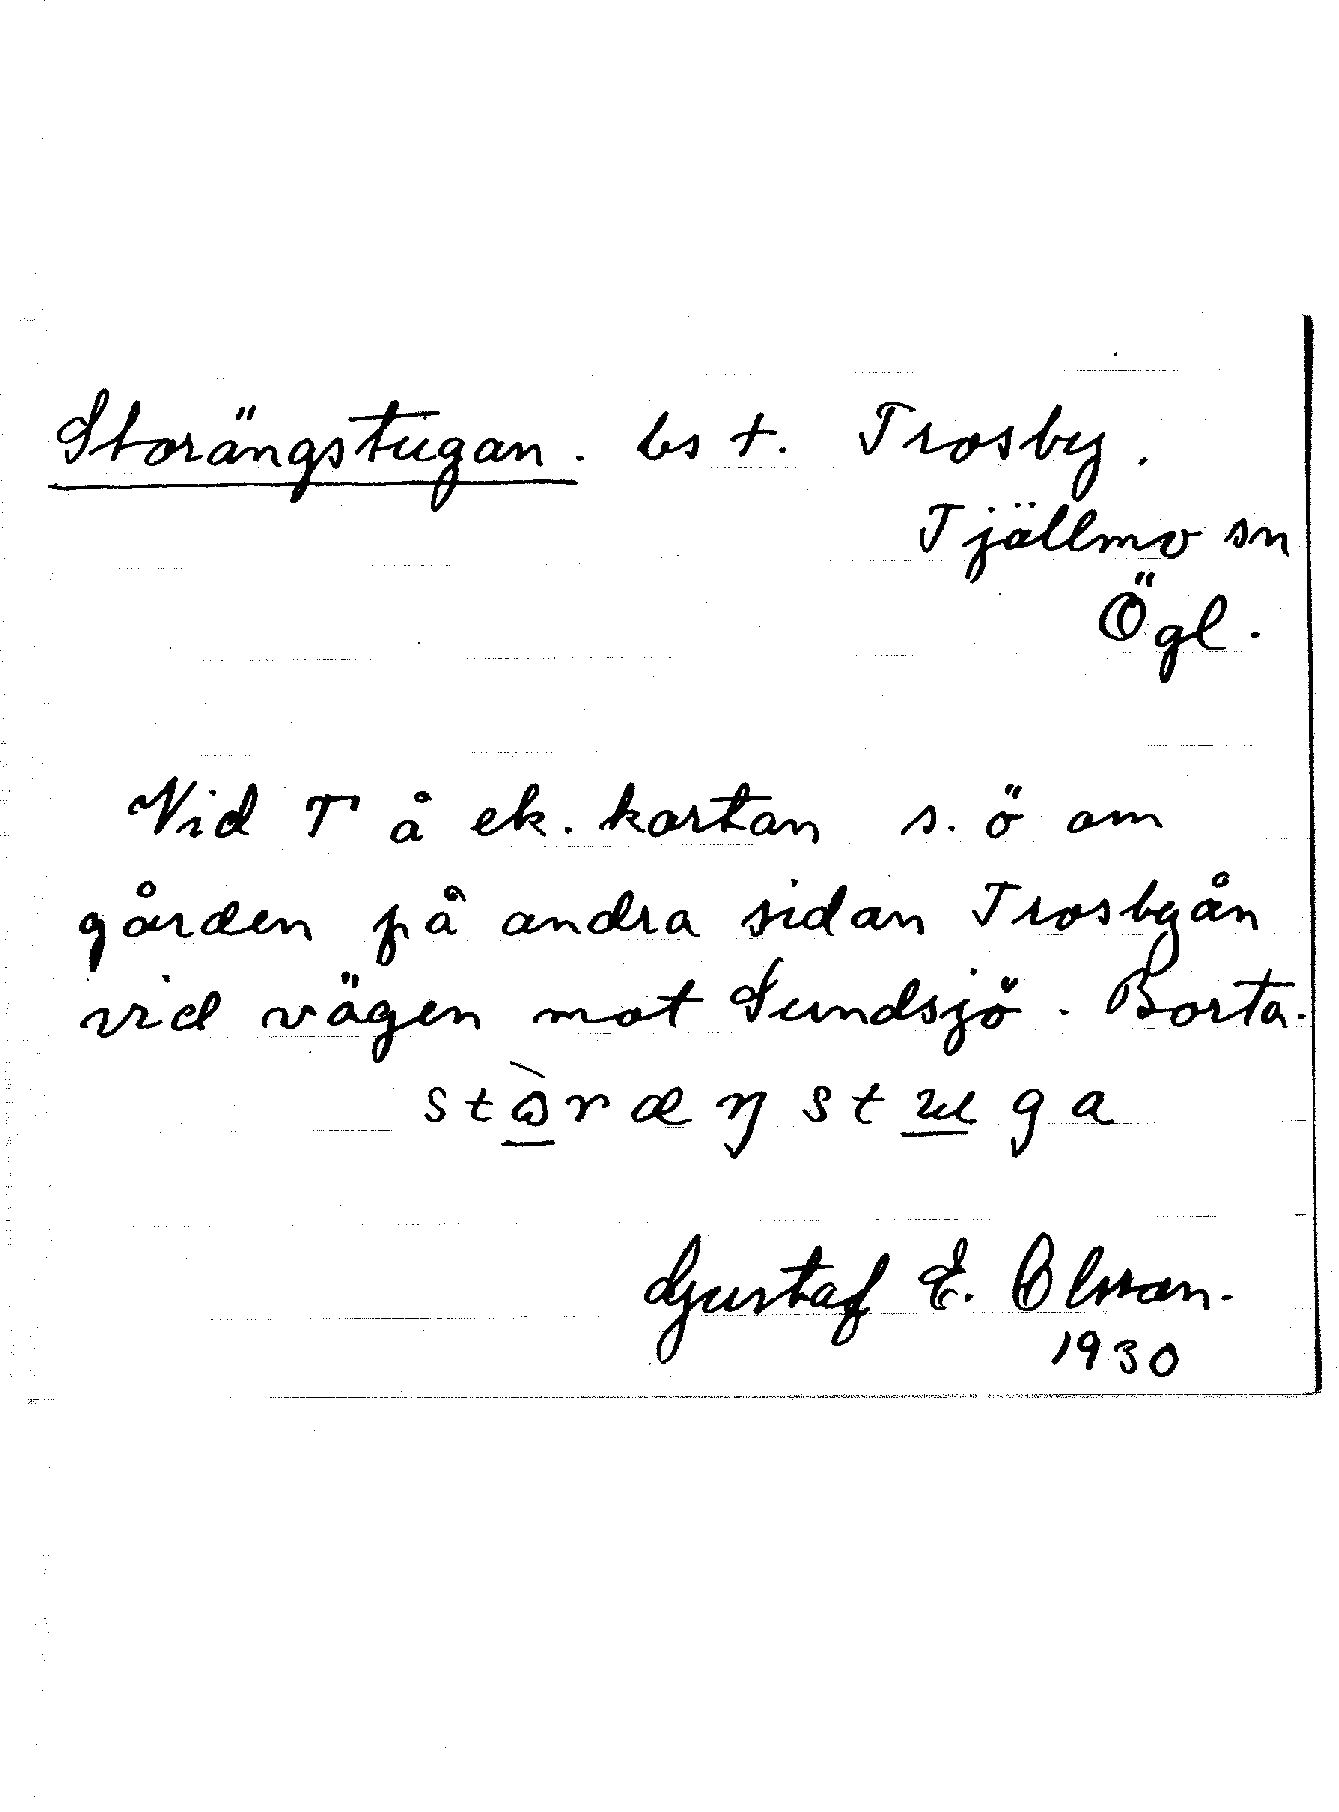 Storängstugan. bs t. Trosby.
Tjällmo sn
Ögl.
Vid T å ek. kartan s. ö om
gården på andra sidan Trosbyån
vid vägen mot Sundsjö. Borta.
stɔ̀ræŋstuga
Gustaf E. Olsson.
1930